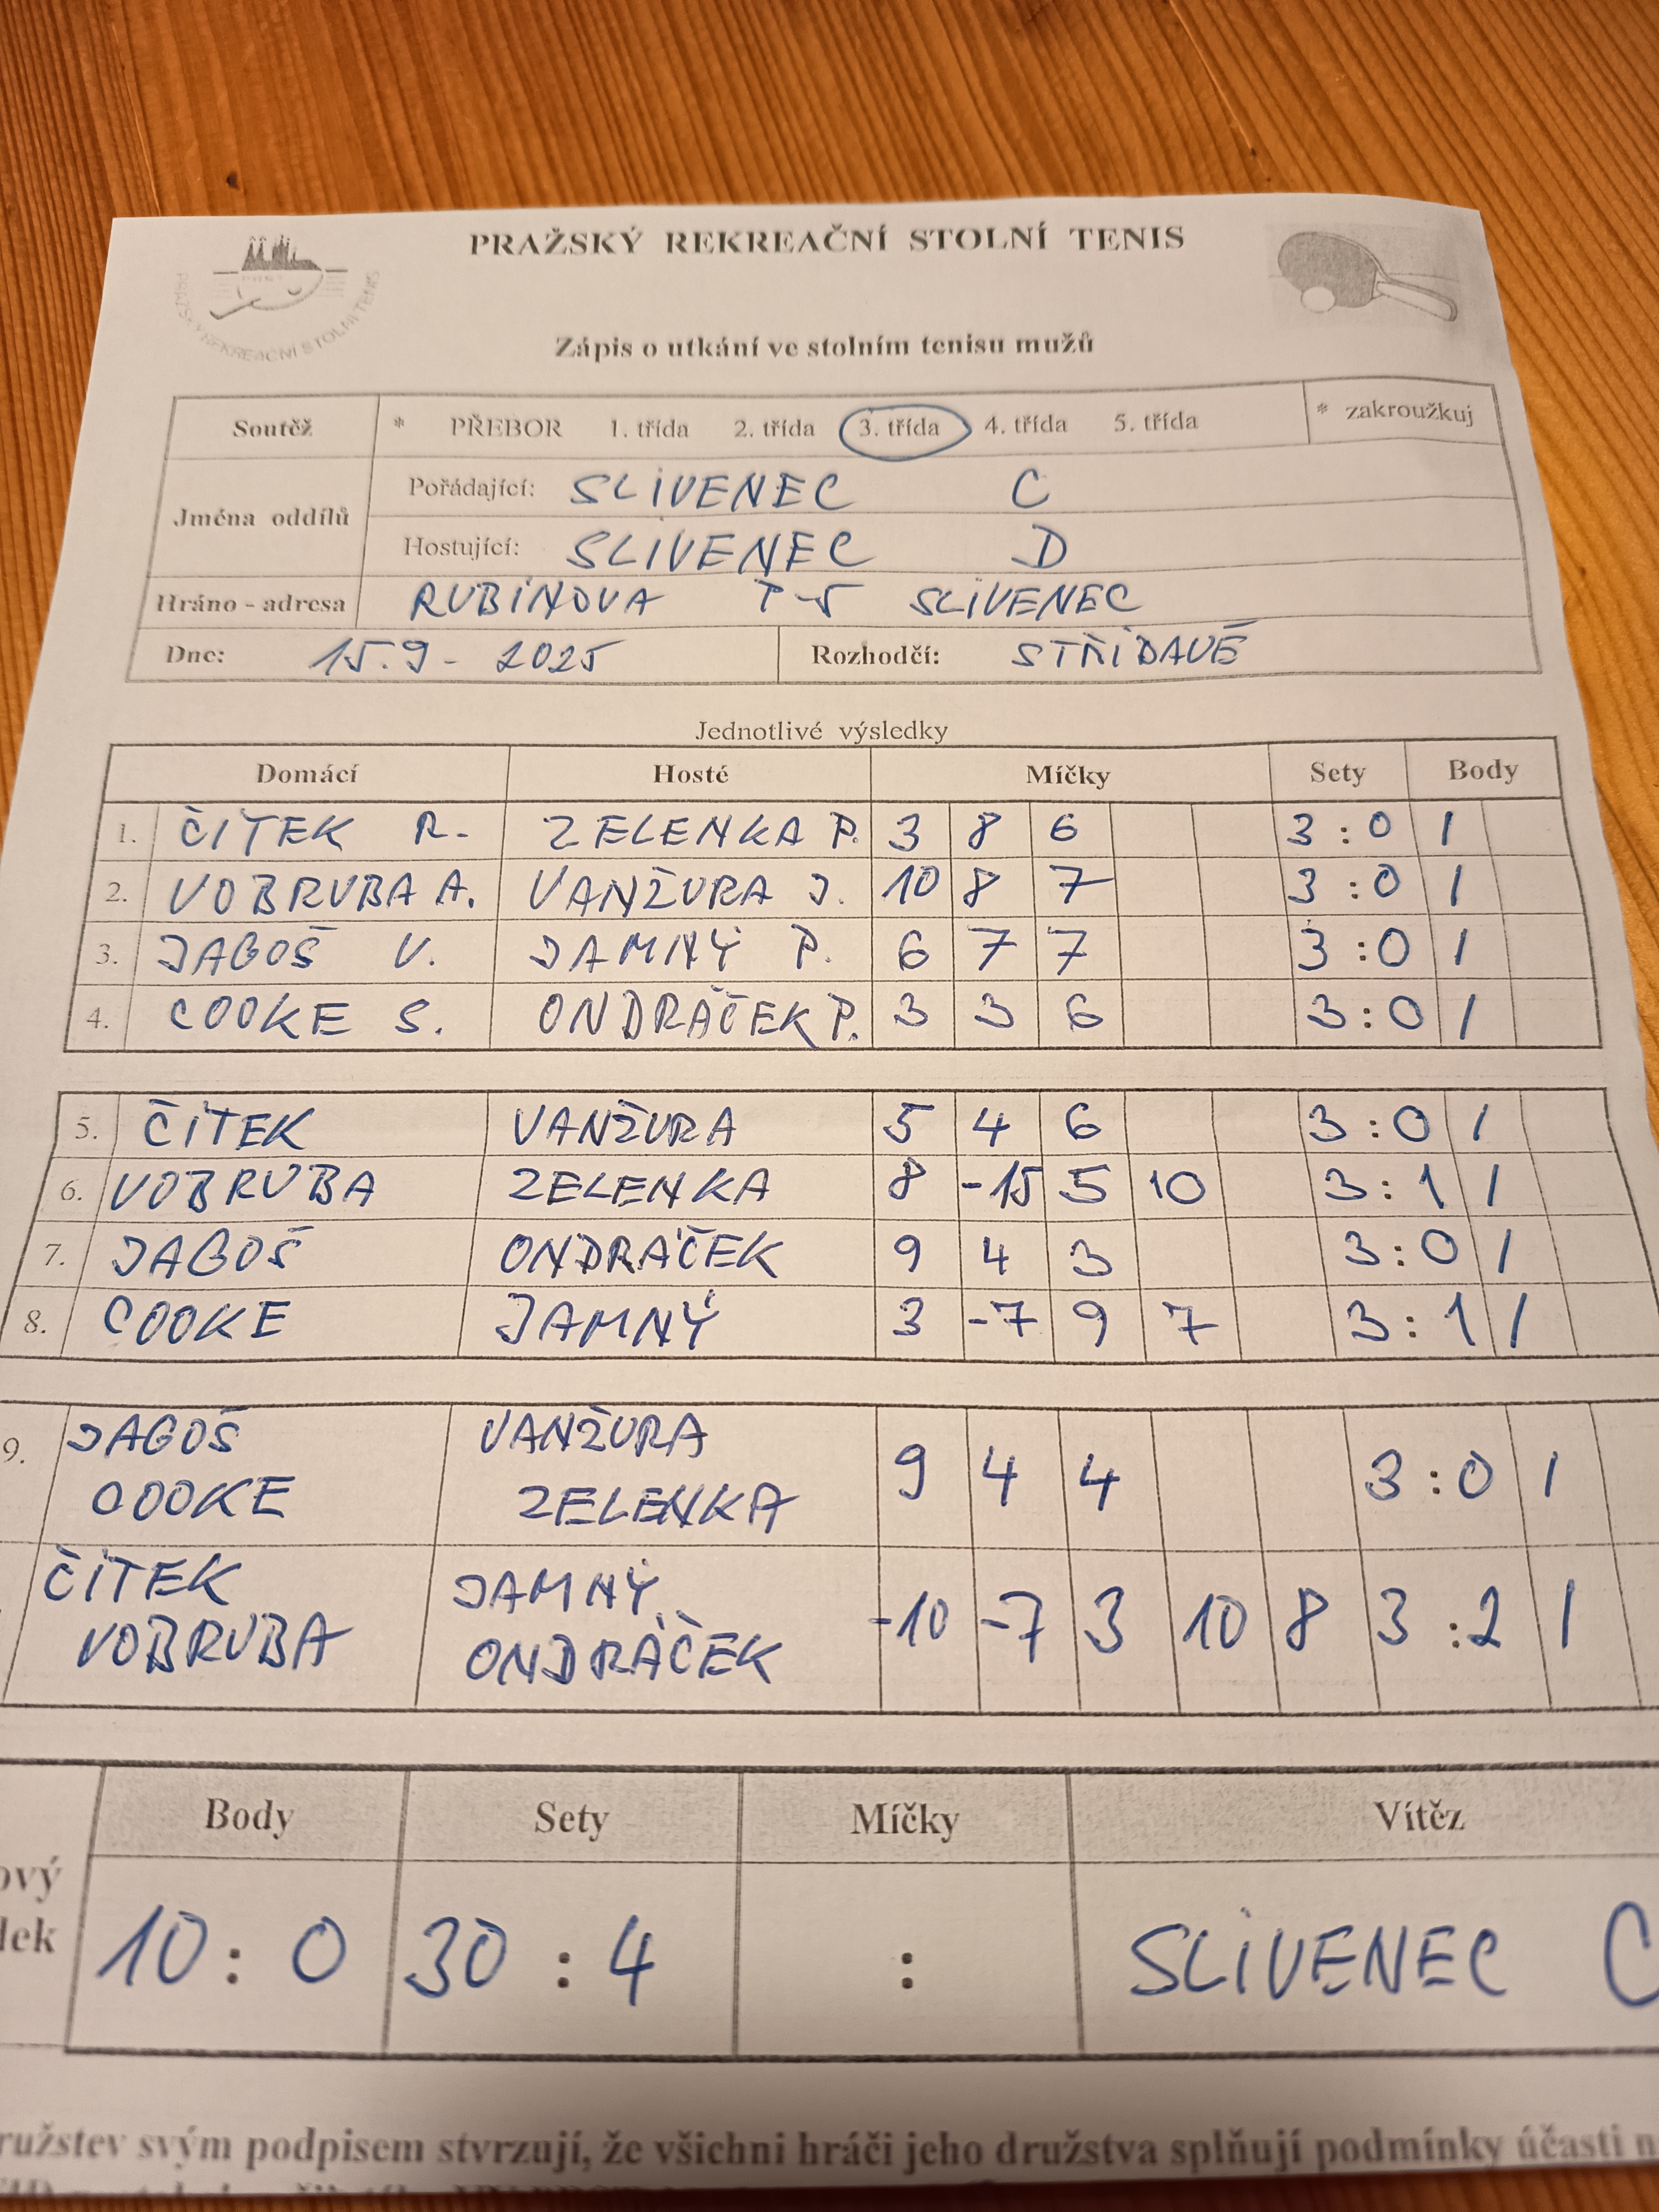 PRAŽSKÝ REKREAČNÍ STOLNÍ TENIS
PRAŽSKÝ REKREAČNÍ STOLNÍ TENIS
Zápis o utkání ve stolním tenisu mužů
Soutěž * PŘEBOR 1. třída 2. třída 3. třída 4. třída 5. třída * zakroužkuj
Jména oddílů
Pořádající: SLIVENEC C
Hostující: SLIVENEC D
Hráno - adresa RUBINOVA P-5 SLIVENEC
Dne: 15.9- 2025 Rozhodčí: STŘÍDAVĚ
Jednotlivé výsledky
Domácí Hosté Míčky Sety Body
1. ČÍTEK R. ZELENKA P. 3 8 6 3:0 1
2. VOBRUBA A. VANŽURA J. 10 8 7 3:0 1
3. JAGOŠ V. JAMNÝ P. 6 7 7 3:0 1
4. COOKE S. ONDRÁČEK P. 3 3 6 3:0 1
5. ČÍTEK VANŽURA 5 4 6 3:0 1
6. VOBRUBA ZELENKA 8 -15 5 10 3:1 1
7. JAGOŠ ONDRÁČEK 9 4 3 3:0 1
8. COOKE JAMNÝ 3 -7 9 7 3:1 1
9. JAGOŠ VANŽURA
COOKE ZELENKA 9 4 4 3:0 1
ČÍTEK JAMNÝ
VOBRUBA ONDRÁČEK -10 -7 3 10 8 3:2 1
Body Sety Míčky Vítěz
ový
dek
10:0 30:4 : SLIVENEC C
ružstev svým podpisem stvrzují, že všichni hráči jeho družstva splňují podmínky účasti n